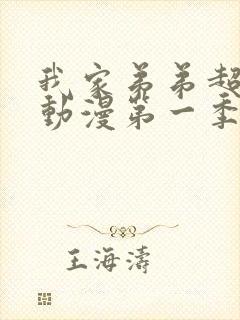 我家弟弟超
動漫第一季
王海濤